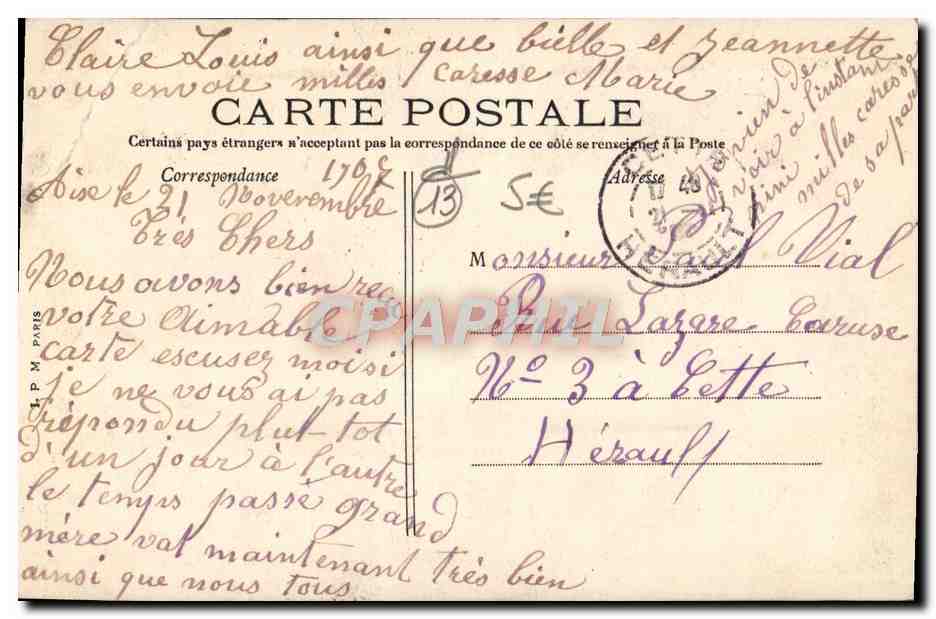 Claire Louis ainsi que bielle et Jeannette
vous envoie milles caresse Marie
CARTE POSTALE
Certains pays étrangers n'acceptant pas la correspondance de ce côté se renseigner à la Poste
Correspondance
Adresse
13
5€
21 Noverembre
très Chers
Nous avons bien reçu
votre Aimable
carte escusez moi si
je ne vous ai pas
répondu plut-tot
d'un jour à l'autre
le temps passe grand
mère vat maintenant très bien
ainsi que nous tous
Monsieur Vial
Rue Lazare Caruse
No 3 à Cette
Hérault
HERAULT
voir à l'instant
milles caresse
de sa part
I. P. M. PARIS
CPAPHIL